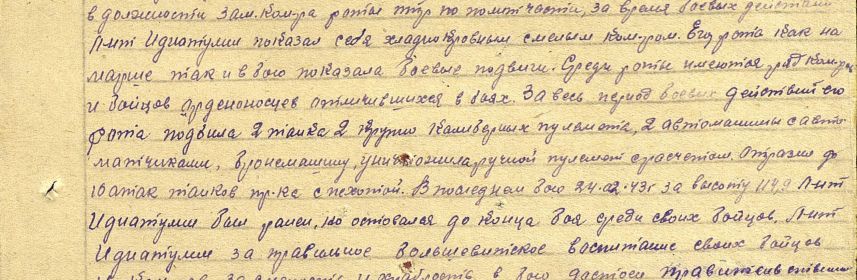 в должности зам. ком-ра роты птр по политчасти, за время боевых действий
Л-нт Идиатулин показал себя хладнокровным смелым ком-ром. Его рота как на
марше так и в бою показала боевые подвиги. Среди роты имеются ряд ком-ров
и бойцов орденоносцев отличившихся в боях. За весь период боевых действий его
рота подбила 2 танка 2 крупно калиберных пулемета, 2 автомашины с авто
матчиками, бронемашину, уничтожила ручной пулемет с расчетом. Отразил до
10 атак танков пр-ка с пехотой. В последнем бою 24.02.43г за высоту Л-нт
Идиатулин был ранен, но оставался до конца боя среди своих бойцов. Л-нт
Идиатулин за правильное большевитское воспитание своих бойцов
за и храбрость в бою достоен правительствен